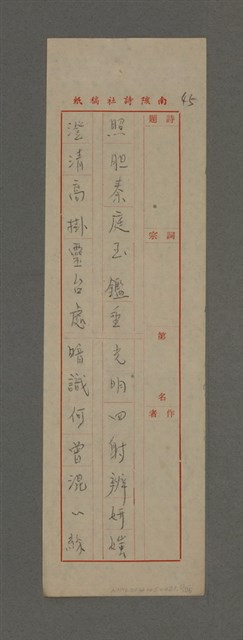 南陔詩社稿紙
45
詩題 詞宗 第 名 作者
照胆秦庭玉鑑垂光明四射辨妍媸
澄清高掛靈台處暗識何曾混一絲